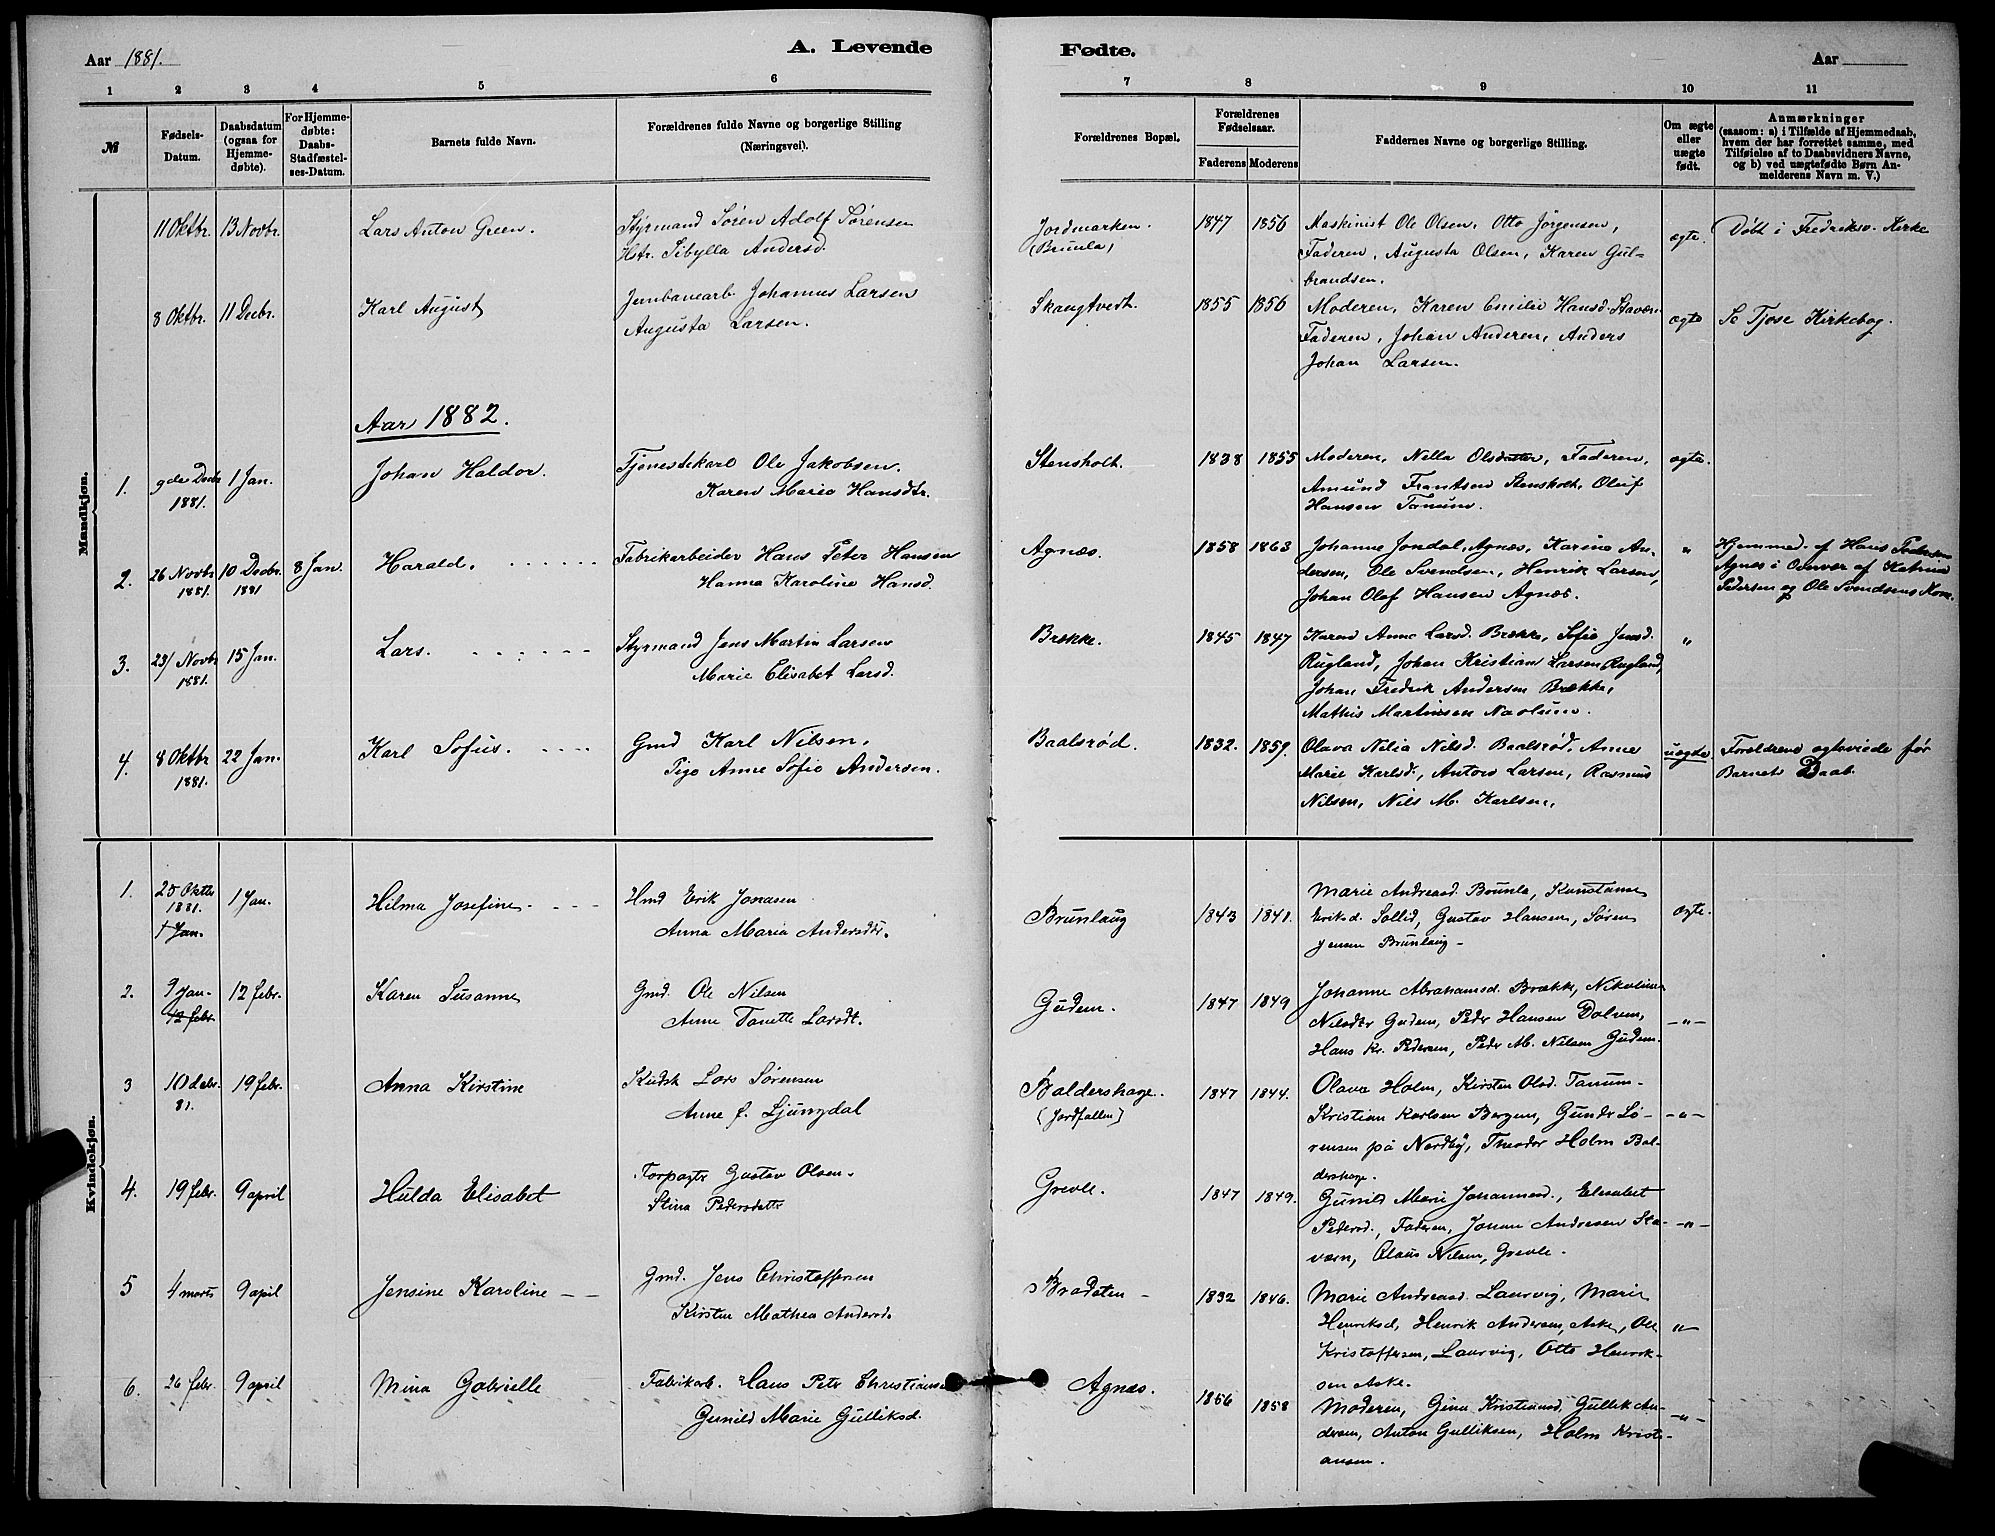 Aar 1881.
A. Levende
Fødte.
Aar
1 2 3 4 5 6 7 8 9 10 11
№
Fødsels-Datum.
Daabsdatum (ogsaa for Hjemmedøbte).
For Hjemmedøbte: Daabs-Stadfæstelses-Datum.
Barnets fulde Navn.
Forældrenes fulde Navne og borgerlige Stilling (Næringsvei).
Forældrenes Bopæl.
Forældrenes Fødselsaar.
Faderens Moderens
Faddernes Navne og borgerlige Stilling.
Om ægte eller uægte født.
Anmærkninger
(saasom: a) i Tilfælde af Hjemmedaab,
hvem der har forrettet samme, med
Tilføielse af to Daabsvidners Navne,
og b) ved uægtefødte Børn Anmelderens Navn m. V.)
Mandkjøn.
11 Oktbr. 13 Novbr. Lars Anton Green. Styrmand Sören Adolf Sörensen Jordmarken. 1847 1856 Maskinist Ole Olsen, Otto Jörgensen, ægte. Döbt i Fredriksv. Kirke
Hstr. Sibylla Andersd. (Brunla) Faderen, Augusta Olsen, Karen Gul-
brandsen.
8 Oktbr. 11 Decbr. Karl August Jernbanearb. Johannes Larsen Skaugtvedt. 1855 1856 Moderen, Karen Emilie Hansd. Staværn ægte Se Tjose Kirkebog.
Augusta Larsen. Faderen, Johan Anderen, Anders
Johan Larsen.
Aar 1882.
1. 9de Decbr 1881. 1 Jan. Johan Haldor. Tjenestekarl Ole Jakobsen. Stensholt. 1838 1855 Moderen, Nella Olsdatter, Faderen, ægte.
Karen Marie Hansdtr. Amund Frantsen Stensholt, Oluf
Hansen Tanum.
2. 26 Novbr 1881. 10 Decbr. 1881 8 Jan. Harald. Fabrikarbeider Hans Peter Hansen Agnæs. 1858 1863 Johanne Jondal, Agnæs, Karine An- " Hjemmed. af Hans Pedersen
Hanna Karoline Hansd. dersen, Ole Svendsen, Henrik Larsen, Agnæs i Overvær af Katrine
Johan Olaf Hansen Agnæs. Pedersen og Ole Svendsens Kone.
3. 23/ Novbr 1881. 15 Jan. Lars. Styrmand Jens Martin Larsen Brække. 1845 1847 Karen Anne Larsd. Brække, Sofie Jensd. "
Marie Elisabet Larsd. Rugland, Johan Kristian Larsen Rugland,
Johan Fredrik Andersen Brække,
Mathis Martinsen Naolum.
4. 8 Oktbr 1881. 22 Jan. Karl Sofus. Gmd Karl Nilsen. Baalsrød. 1832. 1859. Olava Nilia Nilsd. Baalsrød, Anne uægte. Foreldrene egteviede før
Pige Anne Sofie Andersen. Marie Karlsd., Anton Larsen, Rasmus Barnets Daab.
Nilsen, Nils M. Karlsen,
Kvindekjøn.
1. 25 Oktbr 1881. 1 Jan. 1 Jan. Hilma Josefine. Hmd Erik Jonasen Brunlaug 1843 1841. Marie Andreasd. Brunla, Konstanse ægte.
Anna Maria Andersdtr. Eriksd. Sollid, Gustav Hansen, Sören
Jensen Brunlaug -
2. 9 Jan- 12 febr. 12 febr. Karen Susanne Gmd. Ole Nilsen Gudem. 1847 1849 Johanne Abrahamsd. Brække, Nikoline -"-
Anne Tanette Larsdt. Nilsdtr Gudem, Peder Hansen Dolven,
Hans Kr. Pedersen, Peder M. Nilsen Gudem.
3 10 debr. 81. 19 febr. Anna Kirstine Kudsk Lars Sørensen Baldershage. 1847 1844. Olava Holm, Kirsten Olsd. Tanum-
Anne f. Ljungdal (Jordfallen) Kristian Karlsen Bergen, Gunder Sö- -"-
rensen på Nordby, Theodor Holm Bal-
dershage.
4. 19 febr. 9 april Hulda Elisabet Forpagtr Gustav Olsen. Grevle. 1847 1849. Gunild Marie Johannesd., Elisabet
Stina Pedersdatter Pedersd., Faderen, Jonan Andresen Sta- -"-
værn, Olaus Nilsen, Grevle.
5 4 marts 9 april Jensine Karoline Gmd. Jens Christoffersen Bradsten - 1832 1846. Marie Andreasd. Laurvig, Marie
Kirsten Mathea Andersd. Henriksd, Henrik Andersen, Aske, Ole "-
Kristoffersen, Laurvig, Otto Henrik-
sen Aske.
6. 26 febr. 9 april Mina Gabrielle Fabrikarb. Hans Peter Christiansen Agnæs. 1856 1858 Moderen, Gina Kristiansd, Gullik An- -"-
Gunild Marie Gulliksd. dersen, Anton Gulliksen, Holm Kristi-
ansen.